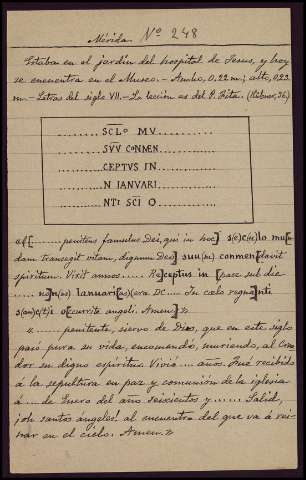 Mérida. Nº 248
Estaba en el jardin del hospital de Jesus, y hoy
se encuentra en el Museo.- Ancho, 0,22 m.; alto, 0,23
m.- Letras del siglo VII.- La leccion es del P. Fita. (Hübner, 36)
..... SCLO MV.......
..... SVV CONMEN.....
..... CEPTVS IN.......
..... N IANVARI.......
..... NTI SCI O........
«[....... penitens famulus Dei, qui in hoc] s(e)c(u)lo mu[n
dam transegit vitam, dignum Deo] suu[m] conmen[davit
spiritum. Vixit annos ..... Re]ceptus in [pace sub die
..... n]n(as) Ianuari[as] (era DC.... In celo regna]nti
s(an)c(t)i o[currite angeli. Amen]»
«...... penitente, siervo de Dios, que en este siglo
pasó pura su vida, encomendó, muriendo, al Cria
dor su digno espíritus Vivió .... años. Fué recibido
á la sepultura en paz y comunión de la iglesia
á .... de Enero del año seiscientos y ....... Salid,
¡oh santos ángeles! al encuentro del que va á rei-
nar en el cielo. Amen.»